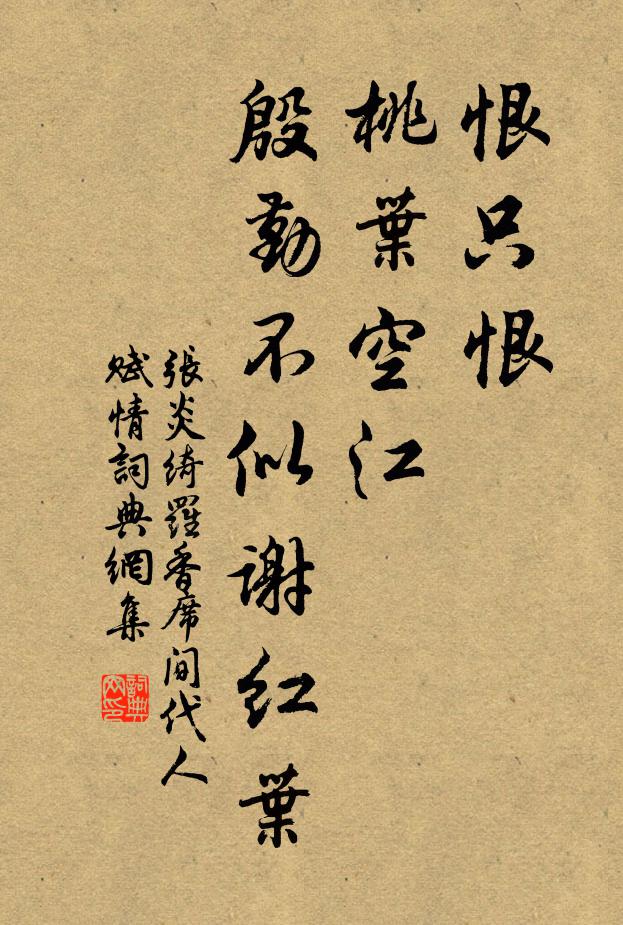 恨只恨
桃葉空江
殷勤不似謝紅葉
張炎綺羅香席间代人
赋情詞典網集
詞典網印